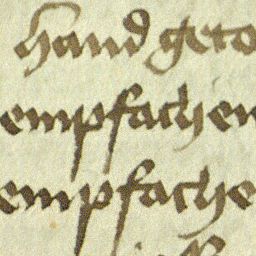 hand geto
empfachen
empfache